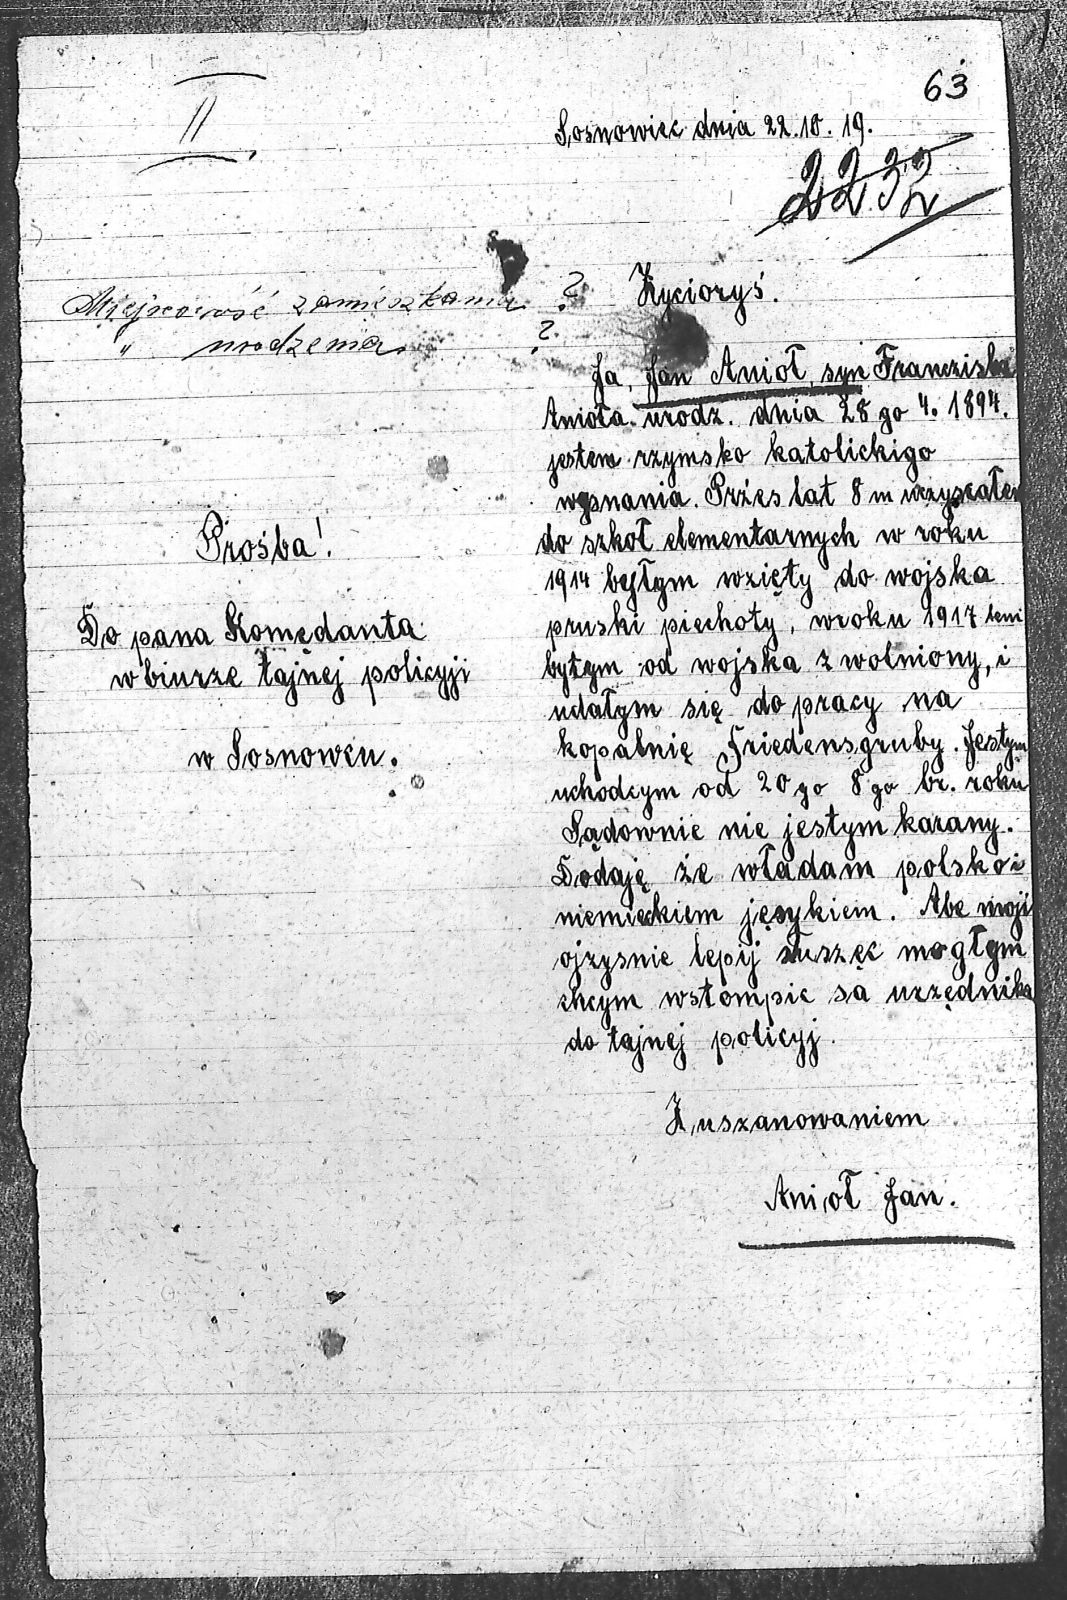 63
II
Sosnowiec dnia 22.10.19.
2232
Miejscowość zamieszkania ?
" urodzenia ?
Życioryś.
Prośba!
Do pana Komędanta
w biurze tajnej policyji
w Sosnowcu.
Ja, Jan Anioł, syn Franciszka
Anioła. urodz. dnia 28 go 4. 1894.
jestem rzymsko katolickigo
wysnania. Przes lat 8 m uczyscałem
do szkoł elementarnych w roku
1914 bełtym wzięty do wojska
pruski piechoty, w roku 1917 tem
byłym od wojska zwolniony, i
udałym się do pracy na
kopalnię Friedensgruby. Jestym
uchodcym od 20 go 8 go br. roku
Sądownie nie jestym karany.
Dodaję że władam polsko i
niemieckiem językiem. Abe moji
ojzysnie lepij słuszęc mogłym
chcym wstompic sa urzędnika
do tajnej policyj.
Z uszanowaniem
Anioł Jan.